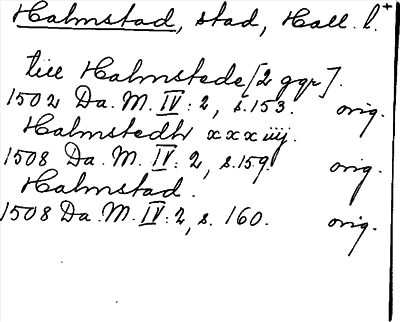 Halmstad, stad, Hall. l.+
till Halmstede [2 ggr].
1502 Da. M. IV: 2, s. 153. orig.
Halmstedh xxxiiij.
1508 Da. M. IV: 2, s. 159. orig.
Halmstad.
1508 Da. M. IV: 2, s. 160. orig.